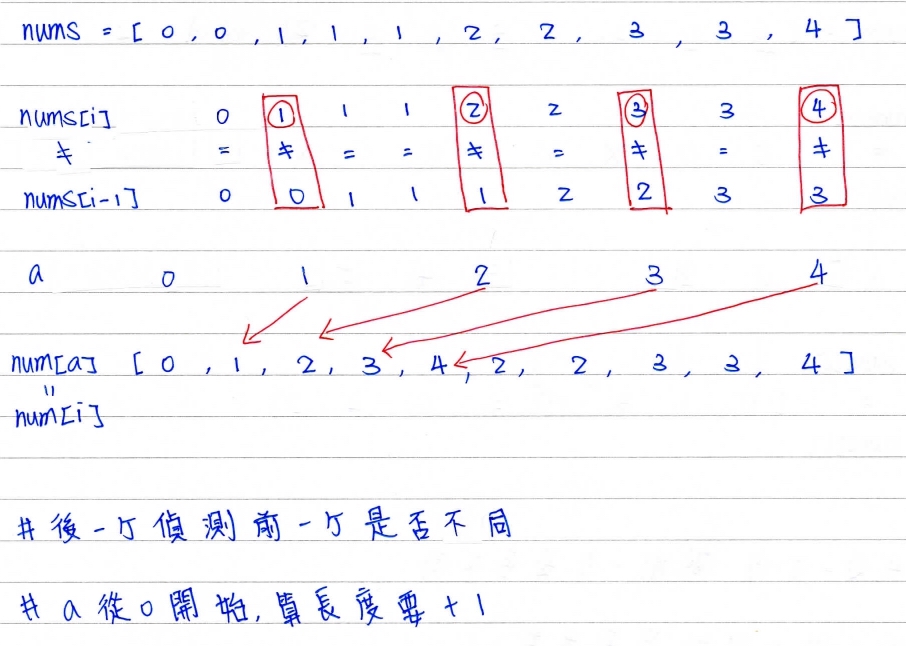 nums = [ 0 , 0 , 1 , 1 , 1 , 2 , 2 , 3 , 3 , 4 ]
nums[i] 0 1 1 1 2 2 3 3 4
≠ = ≠ = = ≠ = ≠ = ≠
nums[i-1] 0 0 1 1 1 2 2 3 3
a 0 1 2 3 4
num[a] [ 0 , 1 , 2 , 3 , 4 , 2 , 2 , 3 , 3 , 4 ]
=
num[i]
# 後一ケ偵測前一ケ是否不同
# a 從 0 開始, 算長度要 + 1